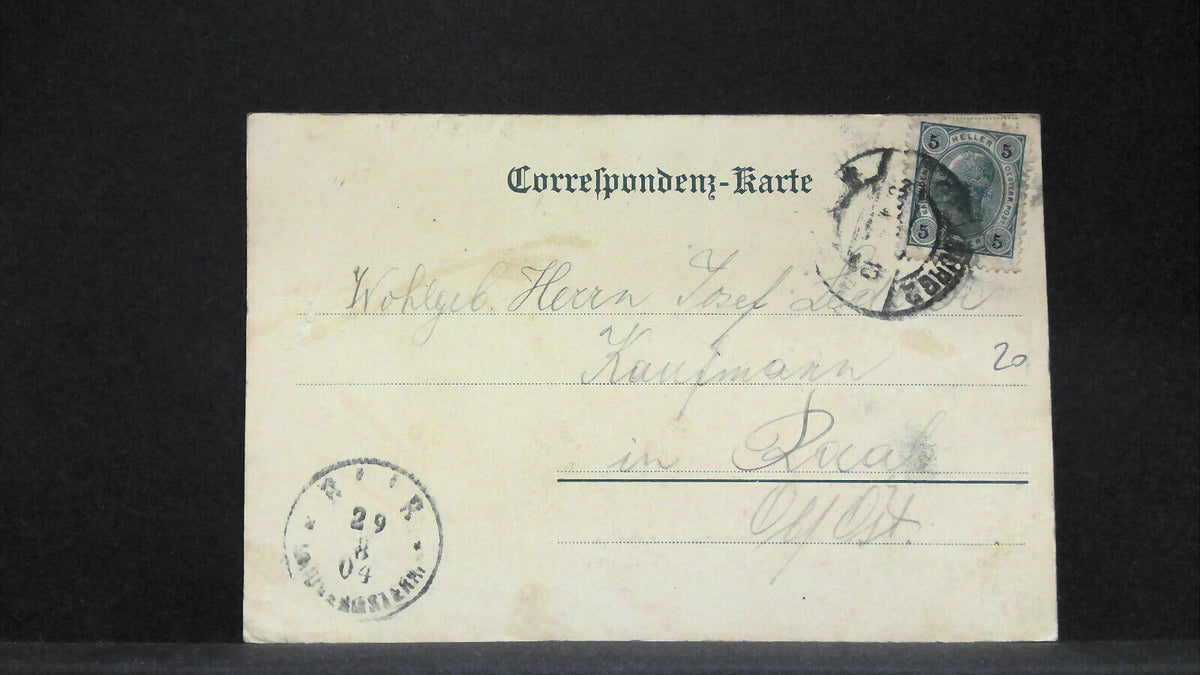 Correspondenz-Karte
5 HELLER 5
OESTERR. POST
5 5
Wohlgeb. Herrn Josef
Kaufmann
20
in Raab
Ob/Öst.
29
8
04